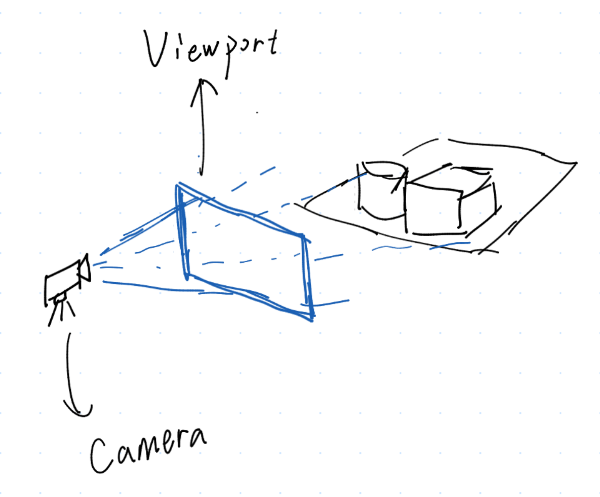 Viewport
Camera